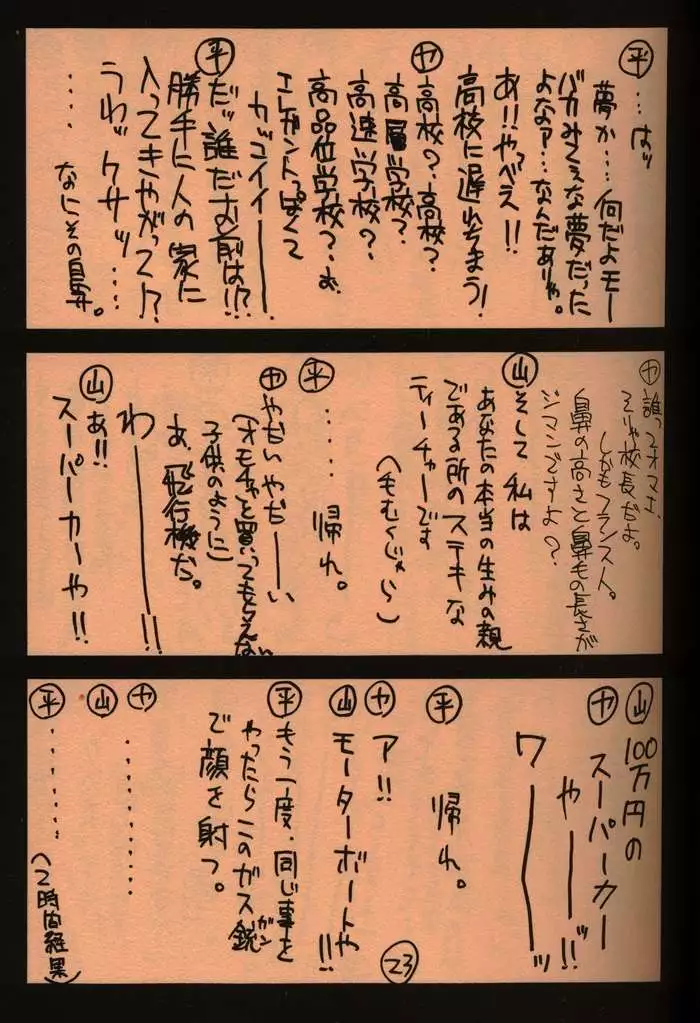 ㊉…はッ
夢か…何だよモー
バカみてぇな夢だった
よなァ…なんだありゃ。
あ!!やっべえ!!
高校に遅れちまう!
ヤ 高校?高校?
高層学校?
高速学校?
高品位学校?お、
エレガントっぽくて
カッコイイ――――。
平 だッ誰だお前は!?
勝手に人の家に
入ってきやがって!?
うわッケサッ……
‥‥なにその鼻。
ヤ 誰ってオマエ、
そりゃ校長だよ。
しかもフランス人。
鼻の高さと鼻毛の長さが
ジマンですよ?
山 そして私は
あなたの本当の生みの親
である所のステキな
ティーチャーです
(毛むくじゃら)
平 ‥‥‥帰れ。
ヤ やだいやだ――い
(オモチャを買ってもらえない
子供のように)
あ、飛行機だ。
わ――――!!
山 あ!!
スーパーカーや!!
山 100万円の
スーパーカー
ヤ や――ッ!!
ワ――――ッ
平 帰れ。
ヤ ア!!
山 モーターボートや!!
平 もう一度、同じ事を
やったらこのガス銃
ガン
で顔を射つ。
ヤ ‥‥‥‥‥
山
平 ‥‥‥‥‥
(2時間経果)
23